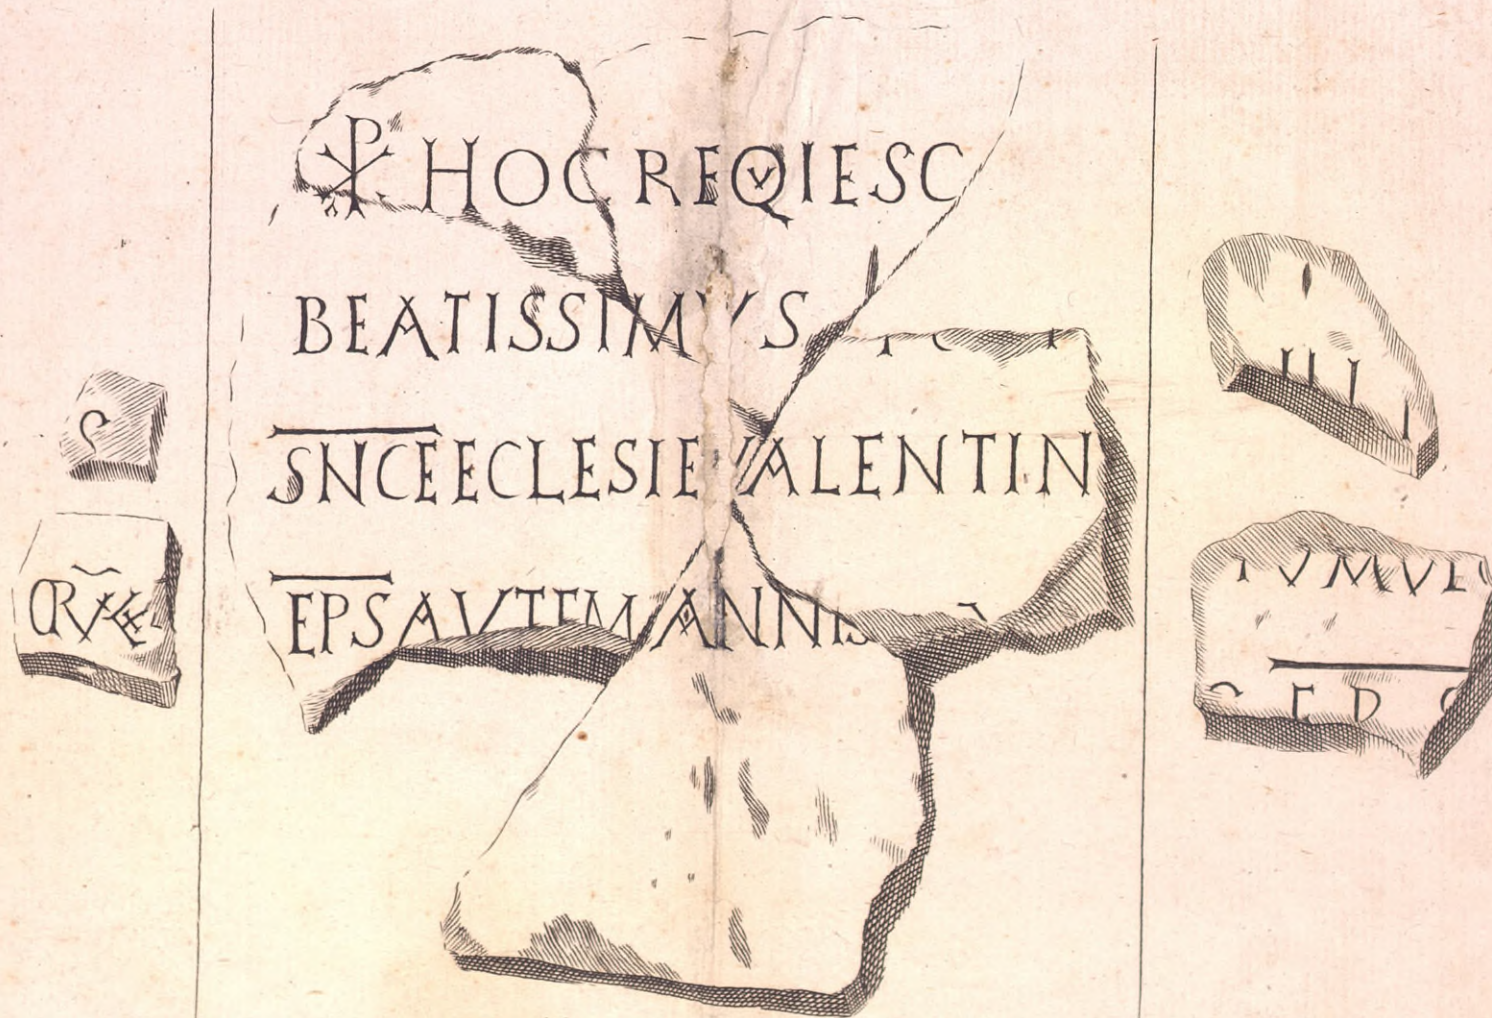 ⳩ HOC REQVIESC
BEATISSIMVS
SNCE ECLESIE VALENTIN
EPS AVTEM ANNIS
TVMVL